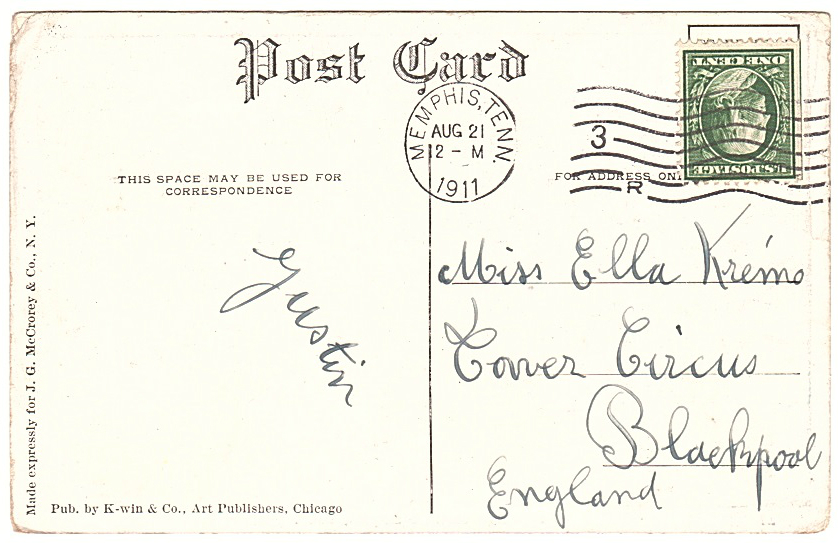 Post Card
MEMPHIS, TENN.
AUG 21
12 - M
1911
3
R
ONE CENT
U.S. POSTAGE
THIS SPACE MAY BE USED FOR
CORRESPONDENCE
FOR ADDRESS ONL
Justin
Miss Ella Krémo
Tower Circus
Blackpool
England
Made expressly for J. G. McCrorey & Co., N. Y.
Pub. by K-win & Co., Art Publishers, Chicago